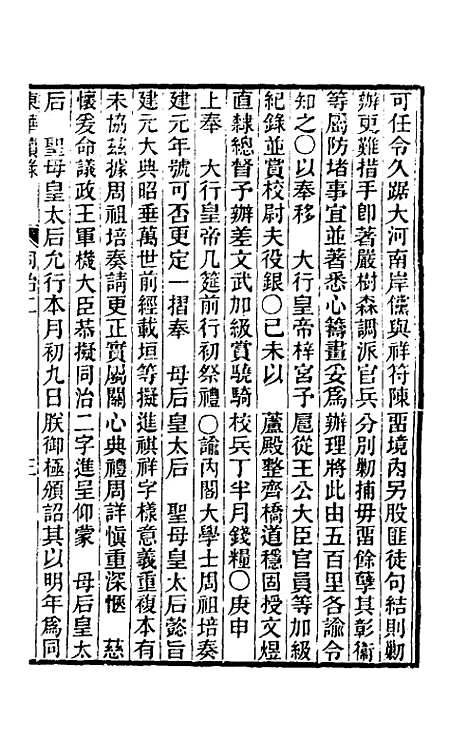 可任令久踞大河南岸儻與祥符陳畱境內另股匪徒句結則勦
辦更難措手卽著嚴樹森調派官兵分別勦捕毋畱餘孽其彰衛
等屬防堵事宜並著悉心籌畫妥爲辦理將此由五百里各諭令
知之〇以奉移　大行皇帝梓宮予扈從王公大臣官員等加級
紀錄並賞校尉夫役銀〇己未以　蘆殿整齊橋道穩固授文煜
直隸總督予辦差文武加級賞驍騎校兵丁半月錢糧〇庚申
上奉　大行皇帝几筵前行初祭禮〇諭內閣大學士周祖培奏
建元年號可否更定一摺奉　母后皇太后　聖母皇太后懿旨
建元大典昭垂萬世前經載垣等擬進祺祥字樣意義重複本有
未協茲據周祖培奏請更正實屬關心典禮周詳愼重深愜　慈
懷爰命議政王軍機大臣恭擬同治二字進呈仰蒙　母后皇太
后　聖母皇太后允行本月初九日朕御極頒詔其以明年爲同
東華續錄　同治二　三